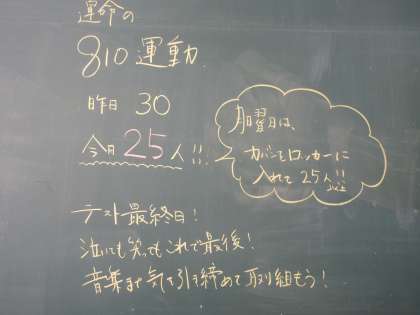 運命の
810運動
昨日 30
今日 25人!!
月曜日は、
カバンもロッカーに
入れて 25人!!
以上
テスト最終日!
泣いても笑ってもこれで最後!
気を引き締めて取り組もう!